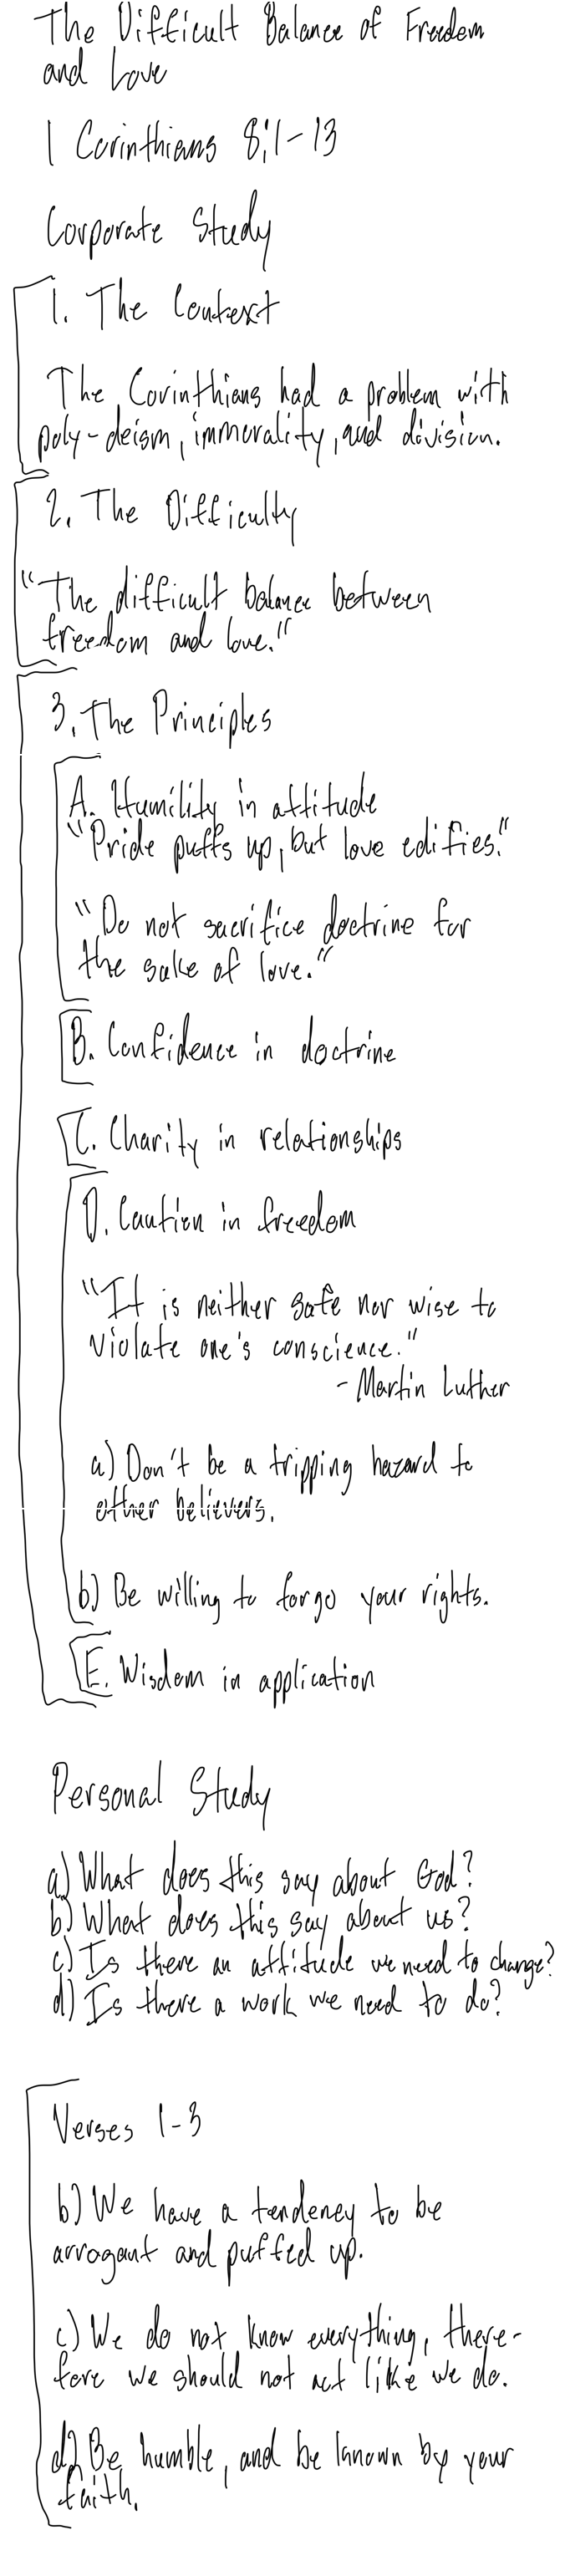 The Difficult Balance of Freedom
and Love
1 Corinthians 8:1-13
Corporate Study
1. The Context
The Corinthians had a problem with
poly-deism, immorality, and division.
2. The Difficulty
"The difficult balance between
freedom and love."
3. The Principles
A. Humility in attitude
"Pride puffs up, but love edifies."
"Do not sacrifice doctrine for
the sake of love."
B. Confidence in doctrine
C. Charity in relationships
D. Caution in freedom
"It is neither safe nor wise to
violate one's conscience."
- Martin Luther
a) Don't be a tripping hazard to
other believers.
b) Be willing to forgo your rights.
E. Wisdom in application
Personal Study
a) What does this say about God?
b) What does this say about us?
c) Is there an attitude we need to change?
d) Is there a work we need to do?
Verses 1-3
b) We have a tendency to be
arrogant and puffed up.
c) We do not know everything, there-
fore we should not act like we do.
d) Be humble, and be known by your
faith.